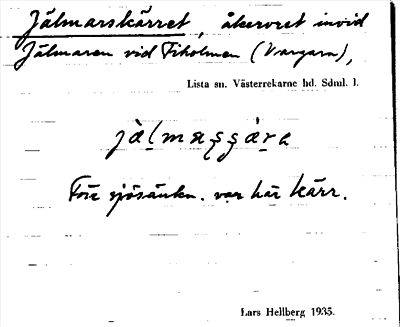 Jälmarskärret, åkervret invid
Jälmaren vid Fiholmen (Vargarn),
Lista sn. Västerrekarne hd. Sdml. l.
Före sjösänkn. var här kärr.
Lars Hellberg 1935.